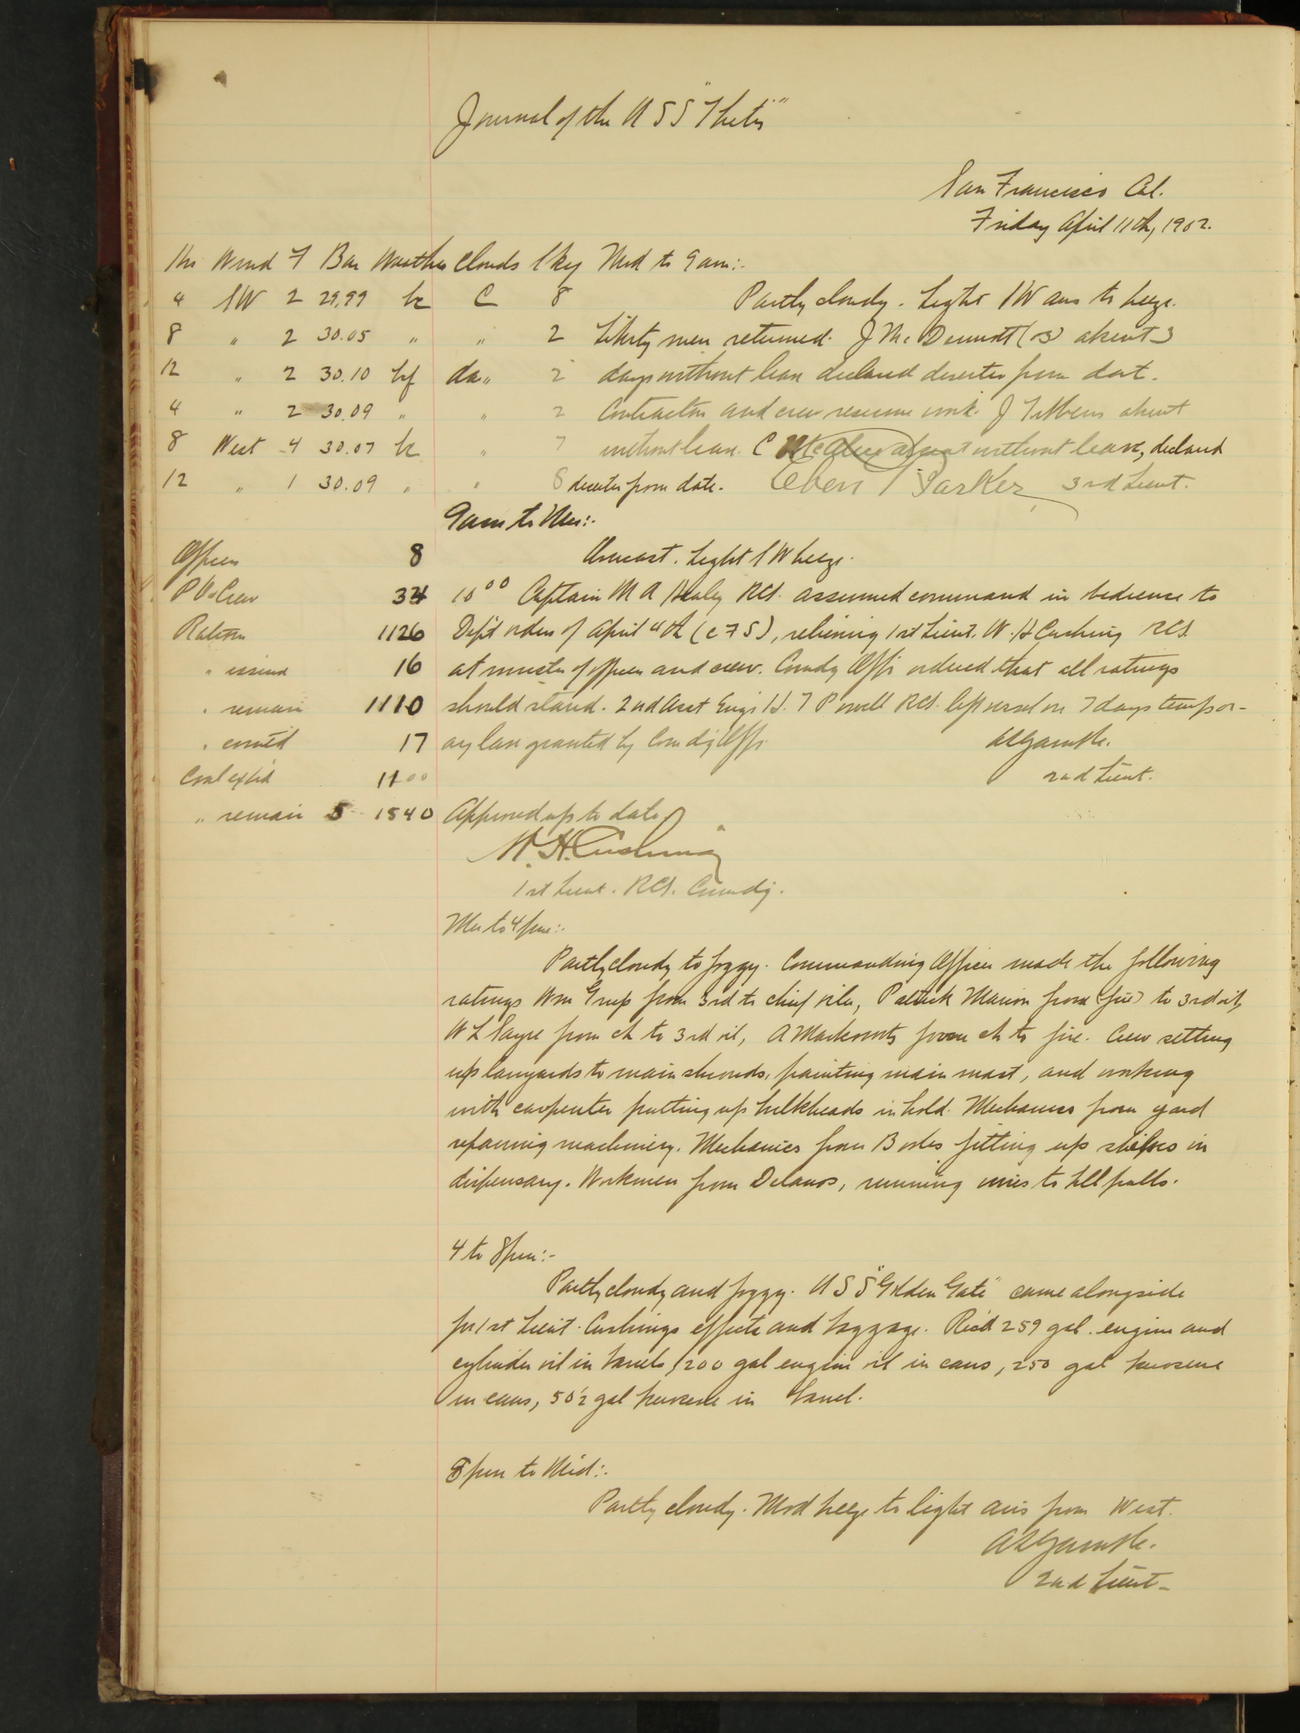 Journal of the U S S "Thetis"
San Francisco Cal.
Friday April 11th, 1902.
Hr Wind F Bar Weather Clouds Sky Mid to 9 am:-
4 SW 2 29.99 bc C 8 Partly cloudy. Light SW airs to breeze.
8 " 2 30.05 " " 2 Liberty men returned. J McDermott (os) absent 3
12 " 2 30.10 bf do " 2 days without leave declared deserter from date.
4 " 2 30.09 " " 2 Contractors and crew resume work. J absent
8 West 4 30.07 bc " 7 without leave. C absent without leave, declared
12 " 1 30.09 " " 8 deserter from date. Eben Barker 3rd Lieut.
9 am to Mer:-
Officers 8 Overcast. Light SW breeze.
P O & Crew 34 10 00 Captain M A Healy RCS. assumed command in obedience to
Rations 1126 Dep't orders of April 4th (c F S), relieving 1st Lieut. W. H Cushing RCS.
" issued 16 at muster of officers and crew. Comdg Offr ordered that all ratings
" remain 1110 should stand. 2nd Asst Engr H. F Powell RCS. left vessel on 7 days tempor-
" comt'd 17 ary leave granted by Comd'g Offr. A L Gamble.
Coal exp'd 1100 2nd Lieut.
" remain 1540 Approved up to date
W. H. Cushing
1st Lieut. RCS. Comdg.
Mer to 4 pm:-
Partly cloudy to foggy. Commanding Officer made the following
ratings Wm from 3rd to chief oiler, Patrick Marion from (fire) to 3rd oil,
W L Sayre from ch to 3rd oil, A from ch to fire. Crew setting
up lanyards to main shrouds, painting main mast, and working
with carpenter putting up bulkheads in hold. Mechanics from yard
repairing machinery. Mechanics from fitting up shelves in
dispensary. Workmen from Delanos, running wires to bell pulls.
4 to 8 pm:-
Partly cloudy and foggy. U S S "Golden Gate" came alongside
for 1st Lieut. Cushings effects and baggage. Rec'd 259 gal. engine and
cylinder oil in barrels, 200 gal engine oil in cans, 250 gal kerosene
in cans, 50 1/2 gal kerosene in barrel.
8 pm to Mid:-
Partly cloudy. Mod breeze to light airs from West.
A L Gamble.
2nd Lieut-